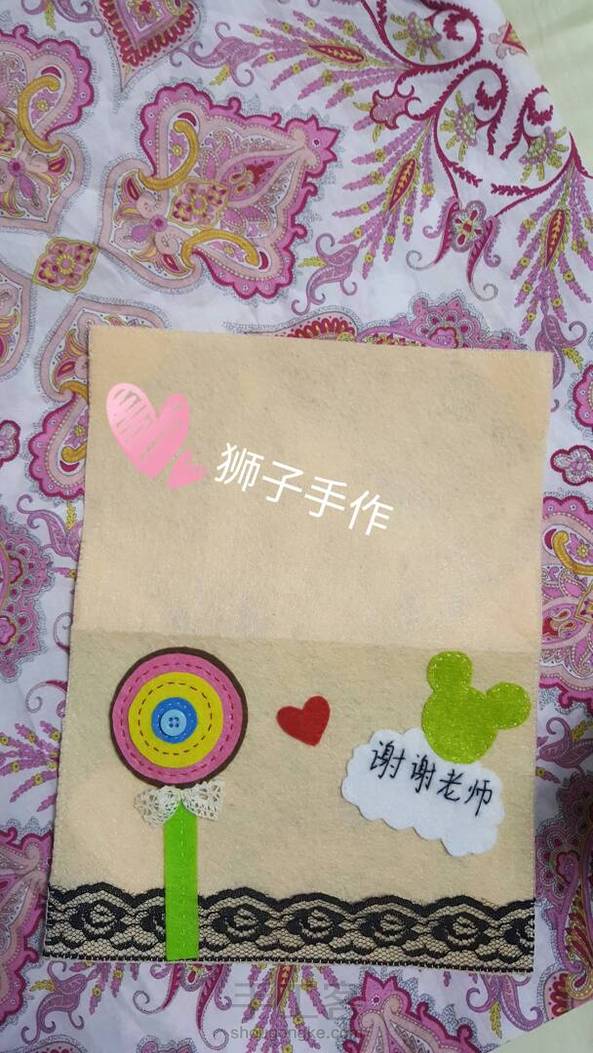 狮子手作
谢谢老师
手工客
shougongke.com